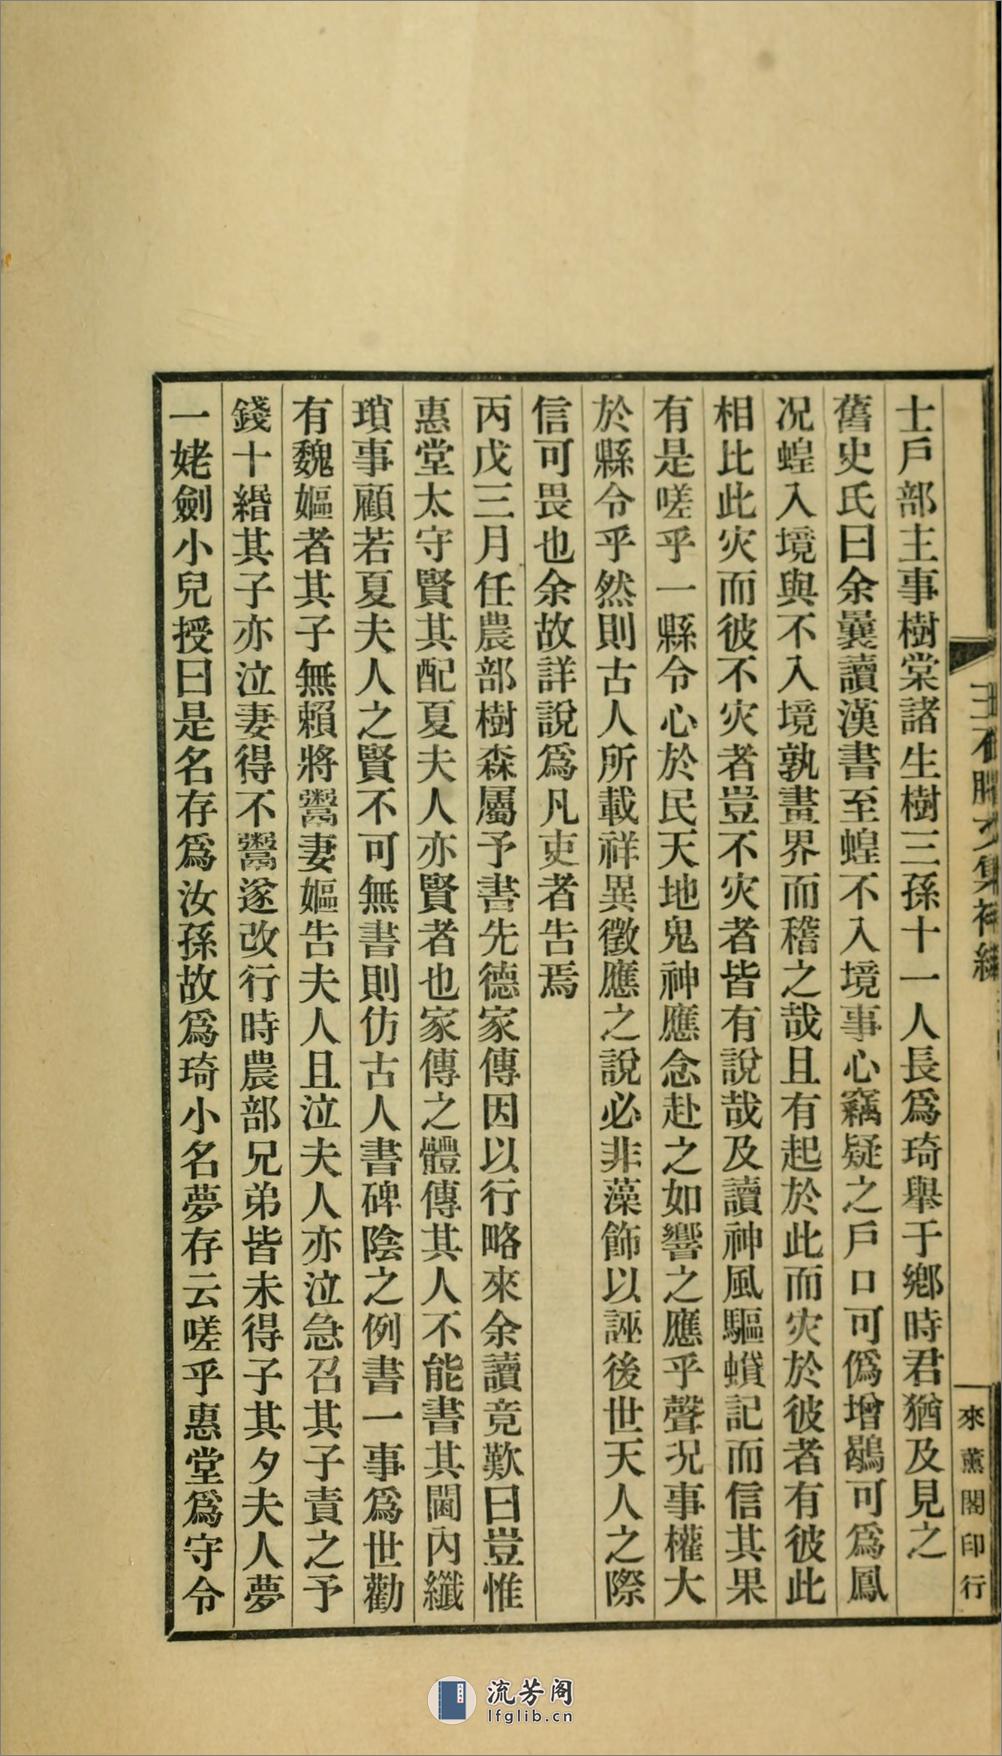 士戶部主事樹棠諸生樹三孫十一人長爲琦舉于鄉時君猶及見之
舊史氏曰余曩讀漢書至蝗不入境事心竊疑之戶口可僞增鶡可爲鳳
况蝗入境與不入境孰畫界而稽之哉且有起於此而灾於彼者有彼此
相比此灾而彼不灾者豈不灾者皆有說哉及讀神風驅蝗記而信其果
有是嗟乎一縣令心於民天地鬼神應念赴之如響之應乎聲况事權大
於縣令乎然則古人所載祥異徵應之說必非藻飾以誣後世天人之際
信可畏也余故詳說爲凡吏者告焉
丙戌三月任農部樹森屬予書先德家傳因以行略來余讀竟歎曰豈惟
惠堂太守賢其配夏夫人亦賢者也家傳之體傳其人不能書其閫內纖
瑣事顧若夏夫人之賢不可無書則仿古人書碑陰之例書一事爲世勸
有魏嫗者其子無賴將鬻妻嫗告夫人且泣夫人亦泣急召其子責之予
錢十緡其子亦泣妻得不鬻遂改行時農部兄弟皆未得子其夕夫人夢
一姥劍小兒授曰是名存爲汝孫故爲琦小名夢存云嗟乎惠堂爲守令
文集補編
來薰閣印行
流芳阁
lfglib.cn